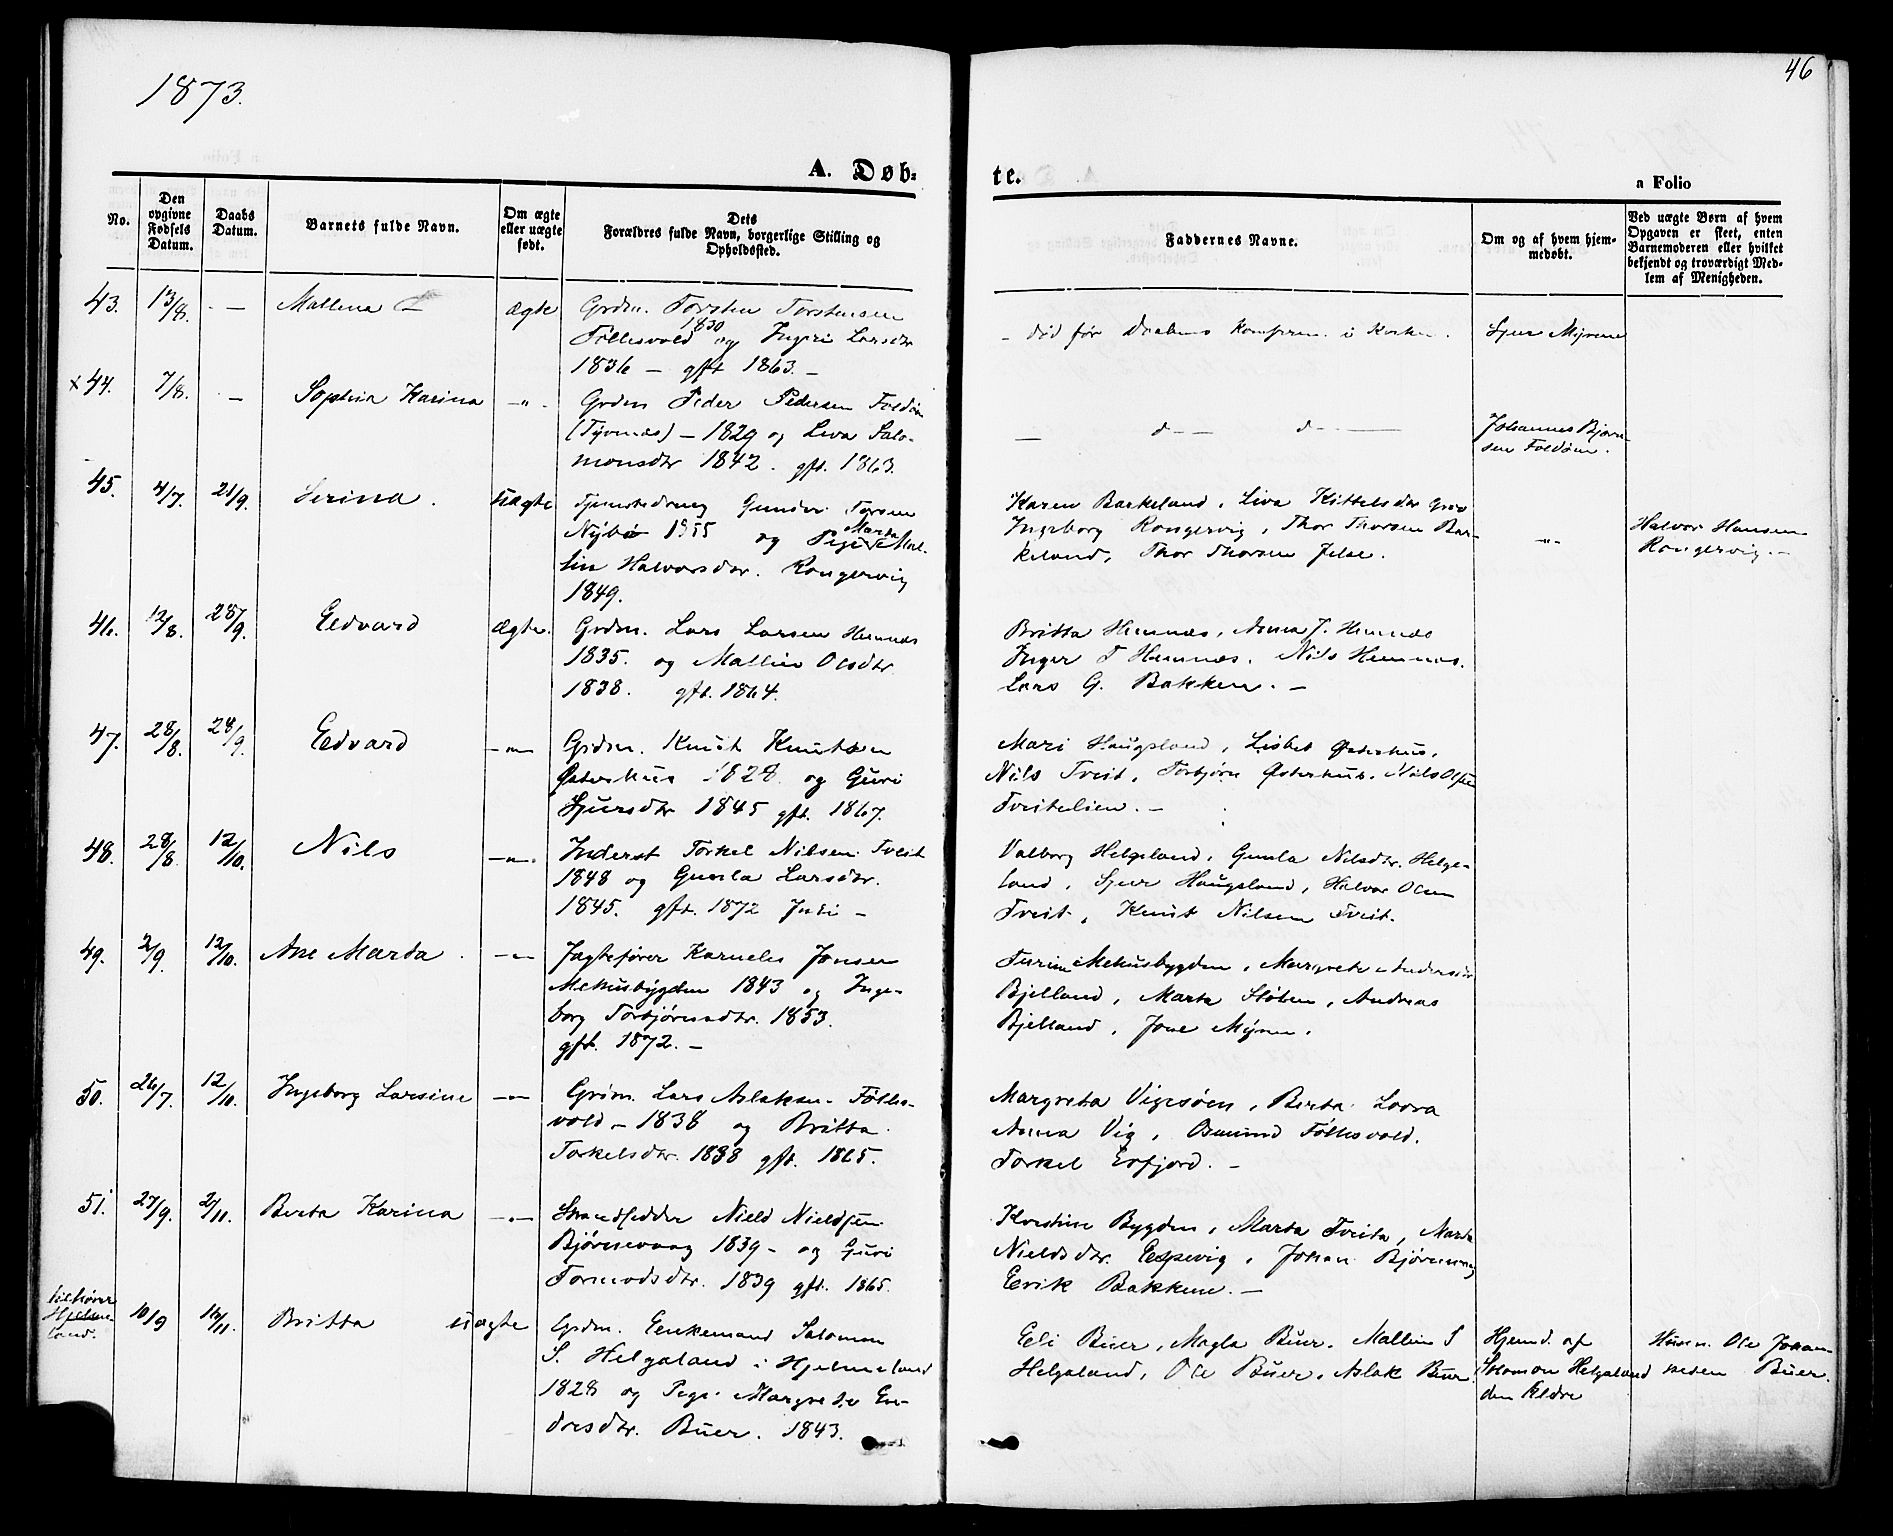 1873.
46
A. Døb-
te.
a Folio
No.
Den opgivne Fødsels Datum.
Daabs Datum.
Barnets fulde Navn.
Om ægte eller uægte født.
Dets Forældres fulde Navn, borgerlige Stilling og Opholdssted.
Faddernes Navne.
Om og af hvem hjemmedøbt.
Ved uægte Børn af hvem Opgaven er skeet, enten Barnemoderen eller hvilket bekjendt og troværdigt Medlem af Menigheden.
43. 13/8. - — Mallena ægte Grdm. Torsten Torstensen
1830
Tøllesvold og Ingeri Larsdtr
1836 — gft 1863. —
- død før Daabens i Kirken. Sjur Myrene
x 44. 7/8. — Sophia Karina —"— Grdm Peder Pedersen Foldøen
— 1829 og Liva Salo-
monsdtr 1842. gft. 1863.
— d— d—
Johannes Bjørn-
sen Foldøen.
45. 4/7. 21/9. Serina. uægte Tjenestedreng Gunder Torsen
Nybø 1855 og Pige Marta Mal-
lin Halvorsdtr. Rongevig
1849.
Karen Barkeland, Liva Kittelsdtr
Ingeborg Rongevig, Thor Thorsen Bar-
keland, Thor Thorsen Jelse.
—"—
Halvor Hansen
Rongevig. —
46. 12/8. 28/9. Edvard ægte. Grdm. Lars Larsen Hemnæs
1835. og Mallin Olsdtr
1838. gft. 1864.
Britta Hemnæs, Anna J. Hemnæs
Inger T Hemnæs. Nils Hemnæs.
Lars G. Bakken. —
47. 28/8. 28/9. Edvard —"— Grdm. Knut Knutsen
Østerhus 1828 og Guri
Sjursdtr 1845 gft. 1867.
Mari Haugsland, Lisbet Østerhus,
Nils Tveit, Torbjørn Østerhus. Nils Olsen
Tveitelien. —
48. 28/8. 12/10. Nils —"— Inderst Torkel Nilsen Tveit
1848 og Gunla Larsdtr.
1845. gft. 1872 Juli —
Valborg Helgeland, Gunla Nilsdtr. Helge-
land, Sjur Haugsland, Halvor Olsen
Tveit, Knut Nilsen Tveit.
49. 2/9. 12/10. Ane Marta. —"— Jagtefører Karneles Jonsen
Mehusbygden 1843 og Inge-
borg Torbjørnsdtr. 1853.
gft. 1872. —
Turine Mehusbygden, Margrete Andersdtr
Bjelland, Marta Støhen, Andreas
Bjelland, Jone Myren.
50. 26/7. 12/10. Ingeborg Larsine —"— Grdm. Lars Aslaksen Tølles-
vold — 1838 og Britta
Torkelsdtr. 1838 gft. 1865.
Margreta Vigesøen, Berta Loora
Anna Vig, Osmund Tøllesvold.
Torkel Erfjord. —
51. 27/9. 2/11. Berta Karina —"— Strandsidder Nield Nieldsen
Bjørnevaag 1839 — og Guri
Tormodsdtr. 1839 gft. 1865.
Kirstine Bygden, Marta Tveita, Marta
Nieldsdtr. Espevig, Johan Bjørnevaag
Eerik Bakken. —
tilhører
Hjelme-
land.
10/9 16/11. Britta uægte Grdm. Enkemand Salomon
S. Helgaland i Hjelmeland
1828 og Pige Margrete En-
dresdtr. Buer. 1843.
Eli Buer, Magla Buer. Mallin S
Helgaland, Ole Buer. Aslak Buer.
Hjemd. af
Salomon Helgaland
den Ældre
Husm. Ole Johan-
nesen Buer.